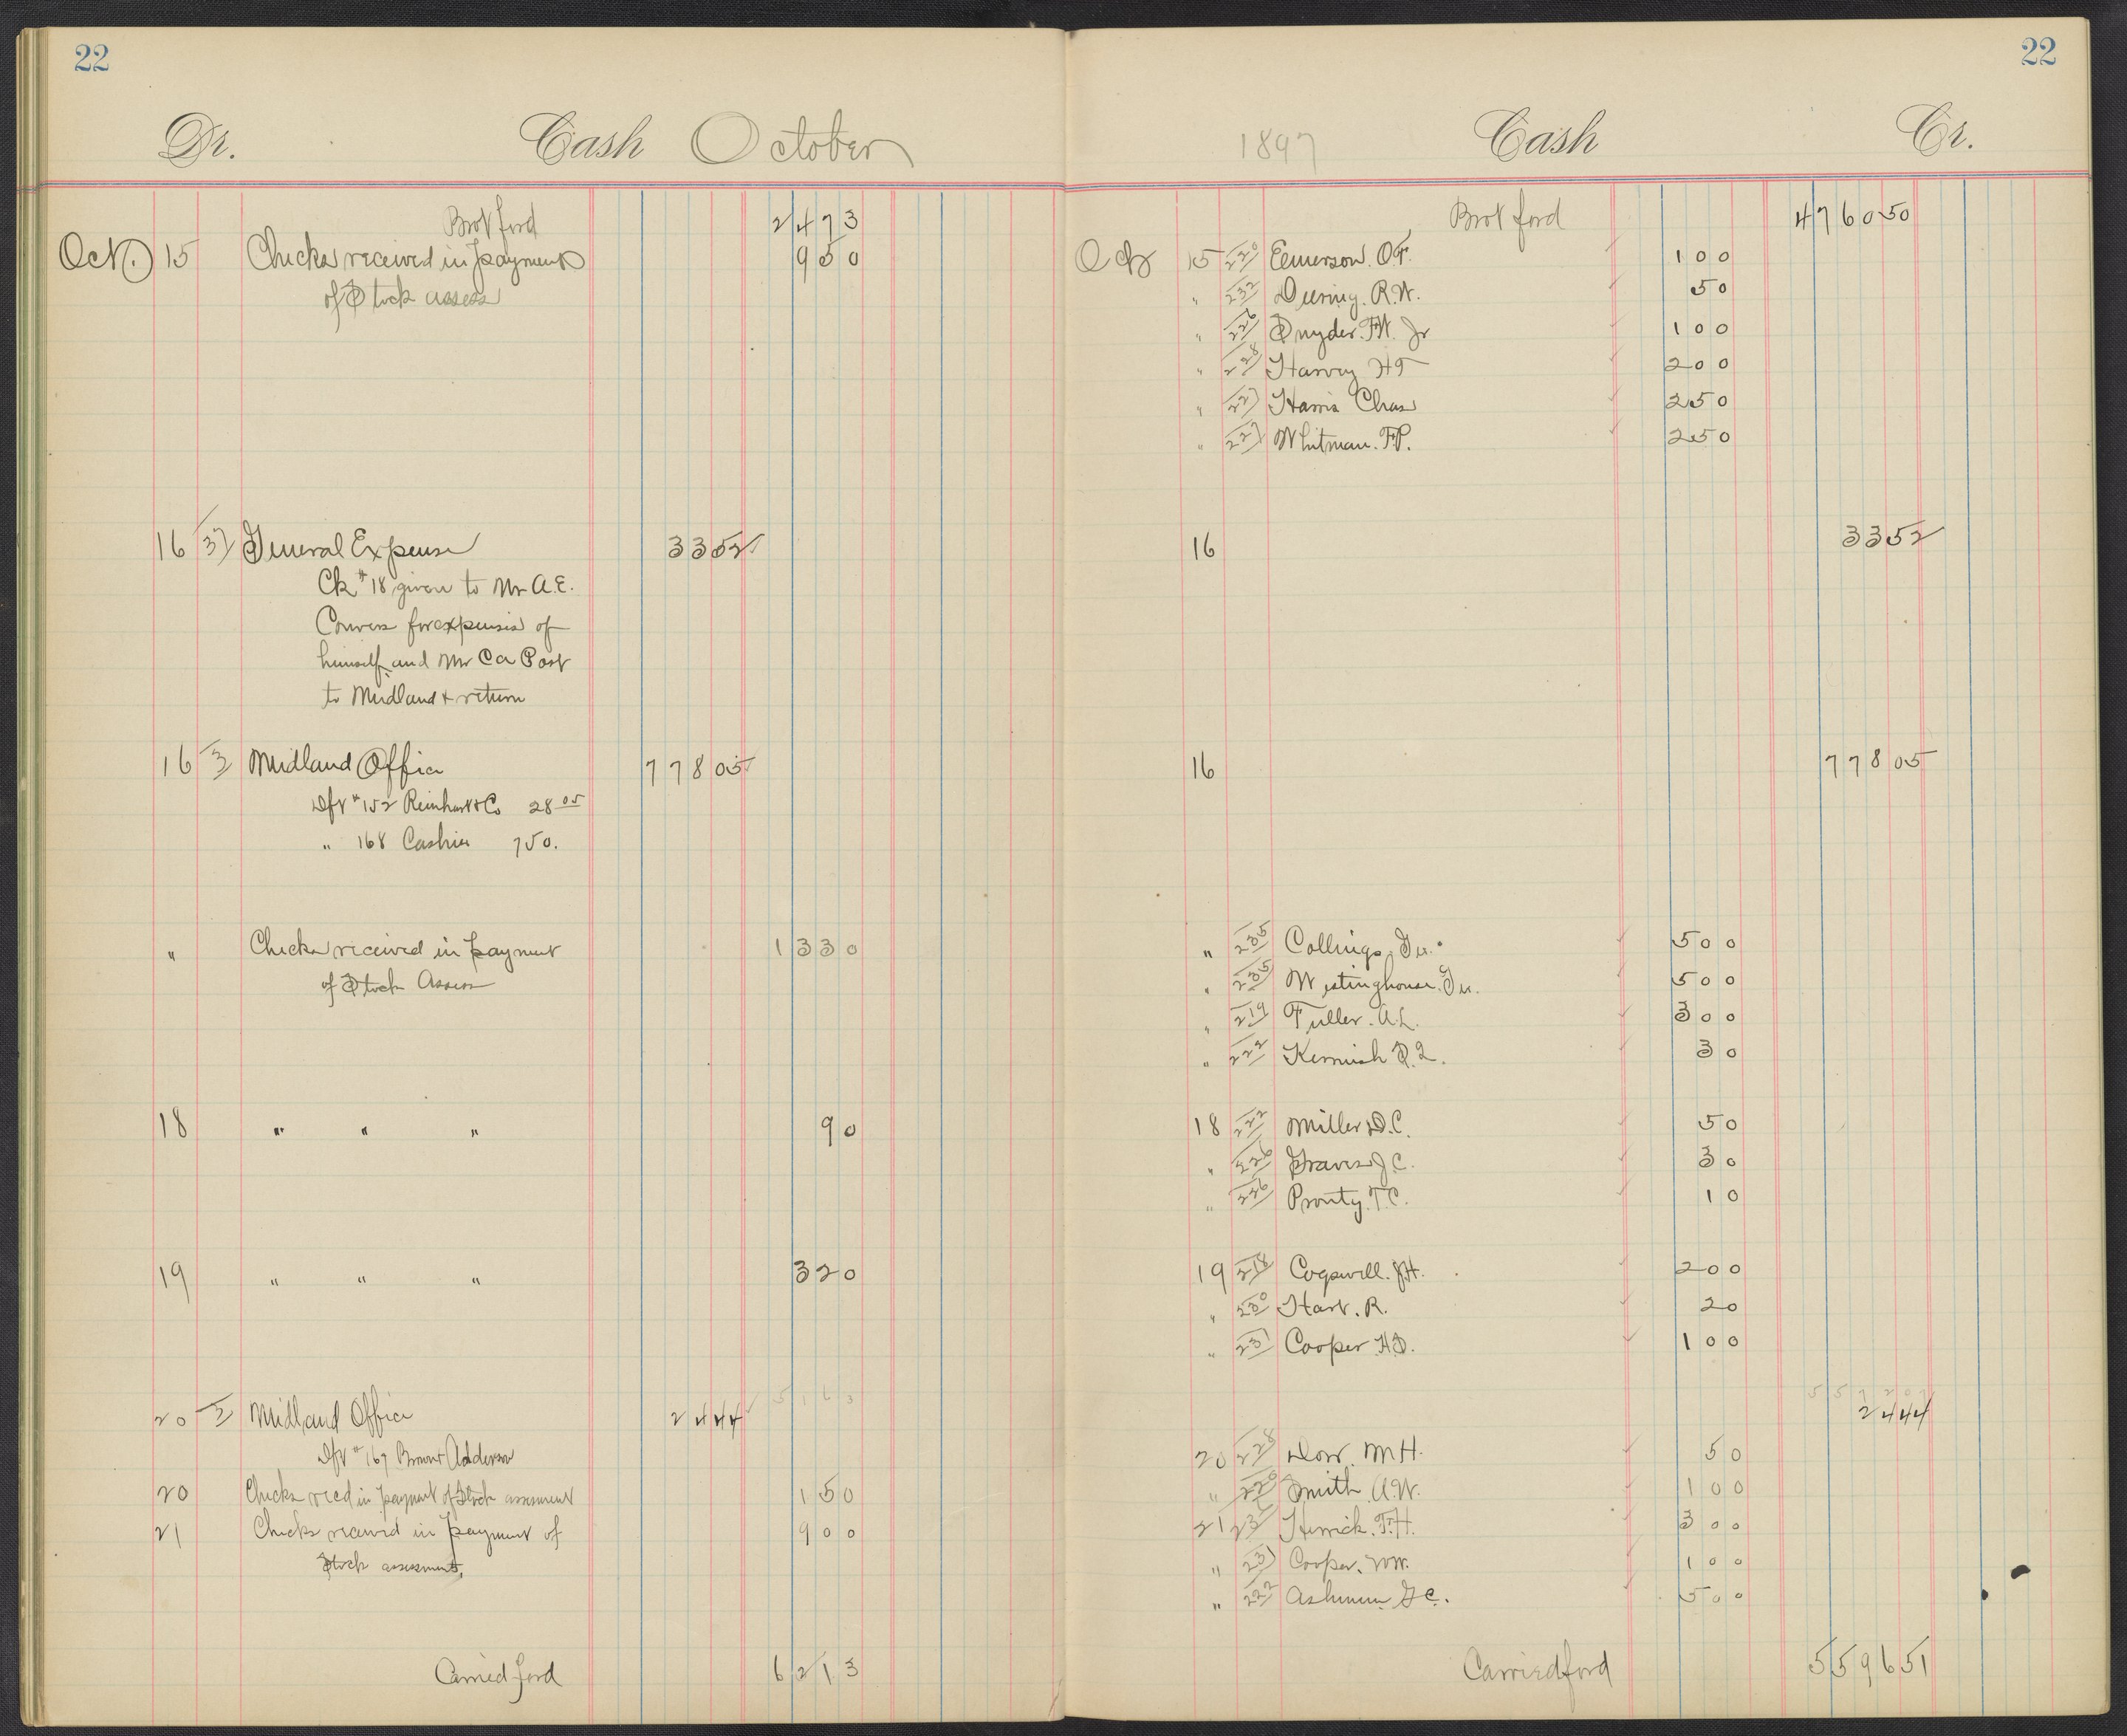 22
Dr. Cash October
Brot ford 2473
Oct. 15 Checks received in payment 950
of Stock assess
16 37 General Expense 33 52
Ck #18 given to Mr A.E.
Convers for expenses of
himself and Mr Ca Post
to Midland & return
16 3 Midland Office 778 05
Dft #152 Reinhart & Co 28 05
" 168 Cashier 750.
" Checks received in payment 1330
of Stock Assess
18 " " " 90
19 " " " 320
5163
20 3 Midland Office 24 44
Dft #167 Brown & Adderson
20 Checks recd in payment of Stock assessment 150
21 Checks received in payment of 900
Stock assessments.
Carried ford 6213
22
1897 Cash Cr.
Brot ford 4760 50
Oct 15 220 Emerson. O.F. 100
" 232 Deering. R.W. 50
" 226 Snyder. F.W. Jr 100
" 228 Harvey HT 200
" 227 Harris Chas 250
" 227 Whitman. F.P. 250
16 33 52
16 778 05
" 235 Collings, Geo. 500
" 235 Westinghouse. Geo. 500
" 219 Fuller. A.L. 300
" 222 Kermish S.L. 30
18 222 Miller D.C. 50
" 226 Graves J.C. 30
" 236 Prouty. T.C. 10
19 218 Cogswell. J.H. 200
" 230 Hart. R. 20
" 231 Cooper H.D. 100
5572 07
24 44
20 228 Dow. M.H. 50
" 220 Smith. A.W. 100
21 231 Herrick. F.H. 300
" 231 Cooper. WW. 100
" 222 Ashmun G.C. 500
Carried ford 5596 51